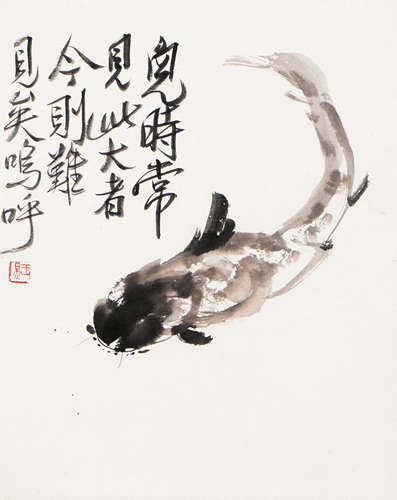 兒時常
見此大者
今則難
見矣嗚呼